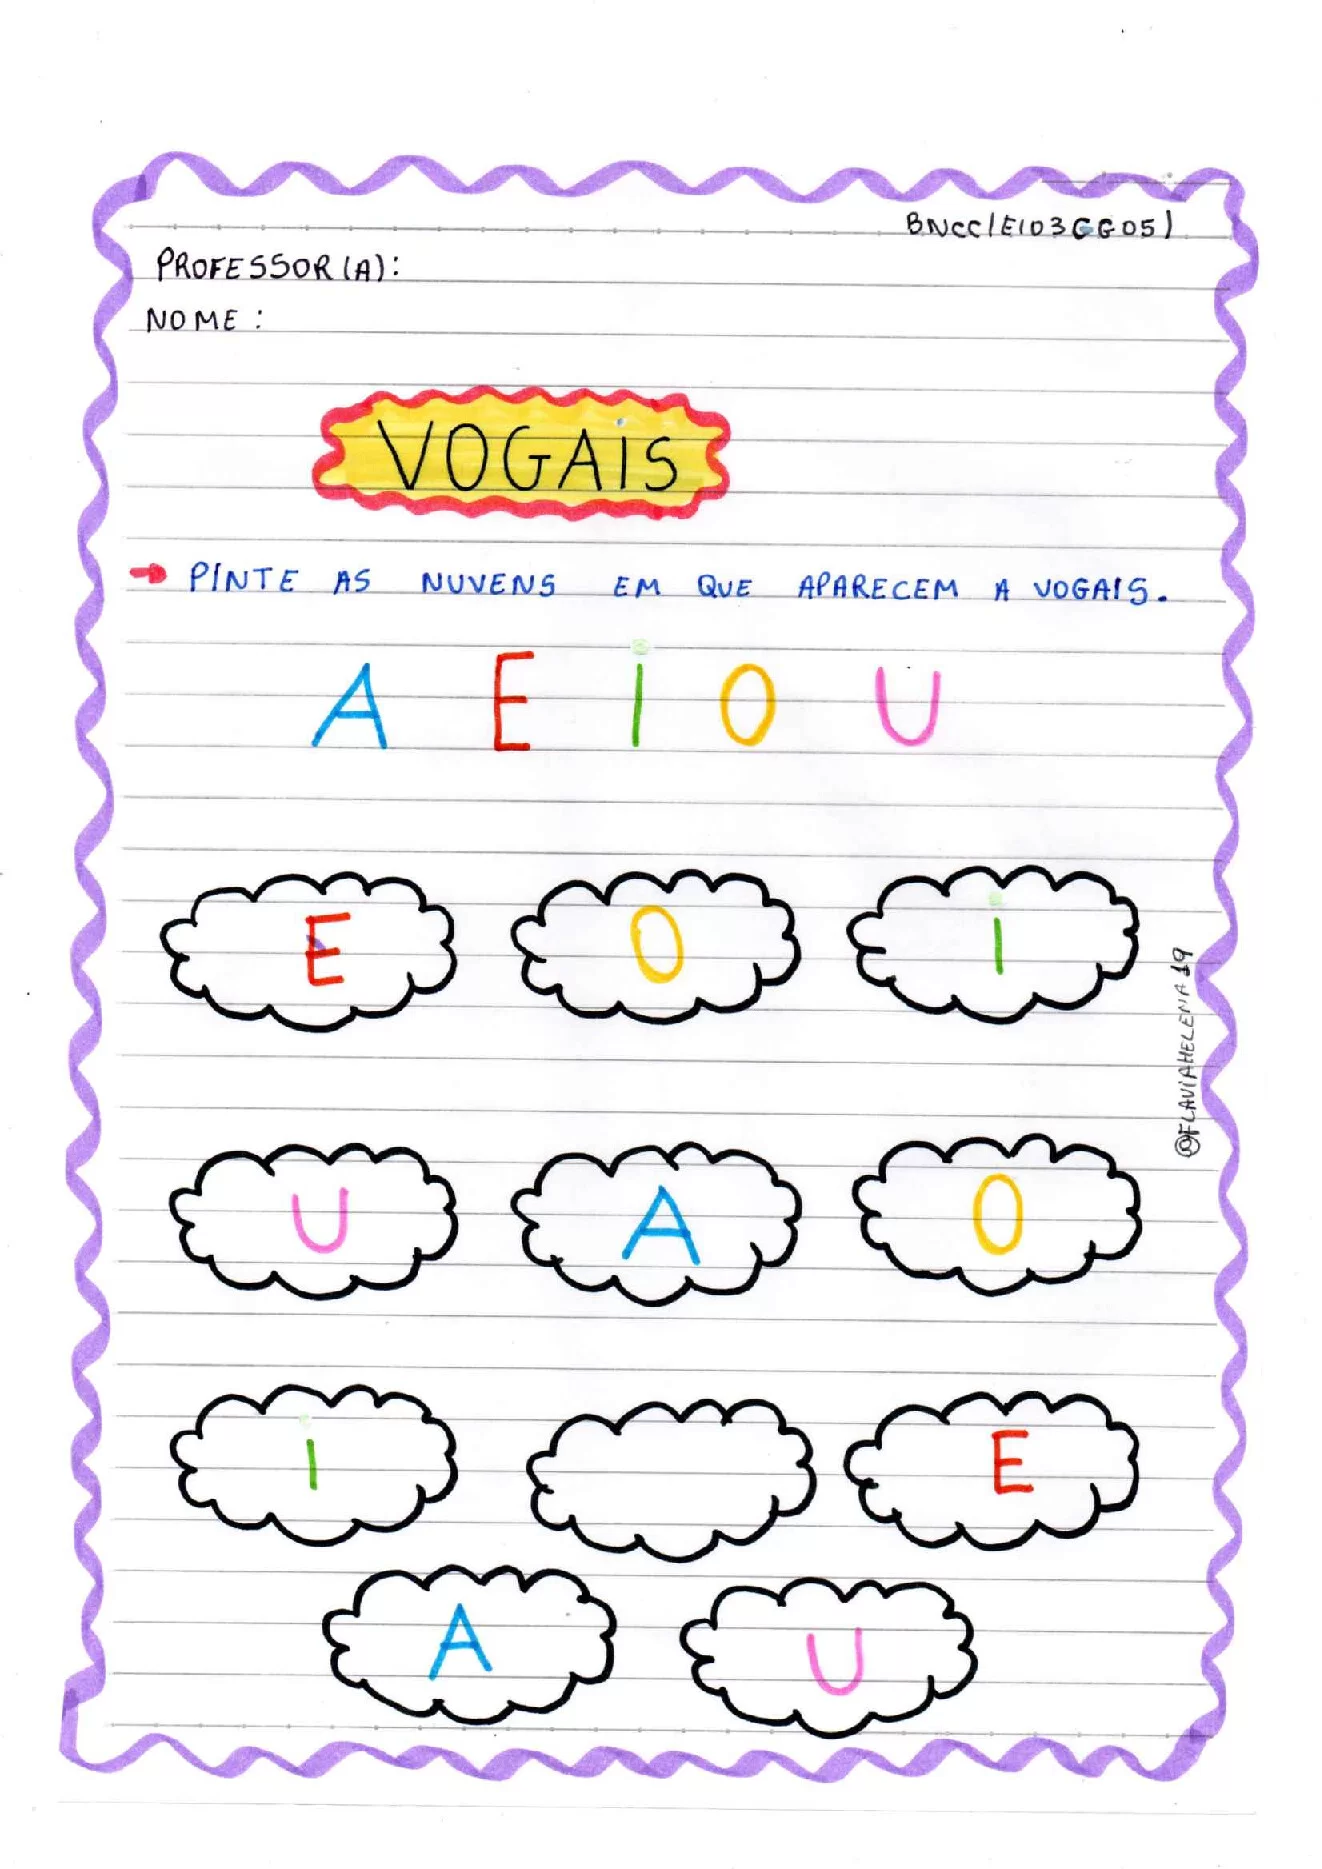 BNCC(EI03GG05)
PROFESSOR(A):
NOME:
VOGAIS
PINTE AS NUVENS EM QUE APARECEM A VOGAIS.
A E I O U
E O I
U A O
I E
A U
@FLAVIAHELENA19